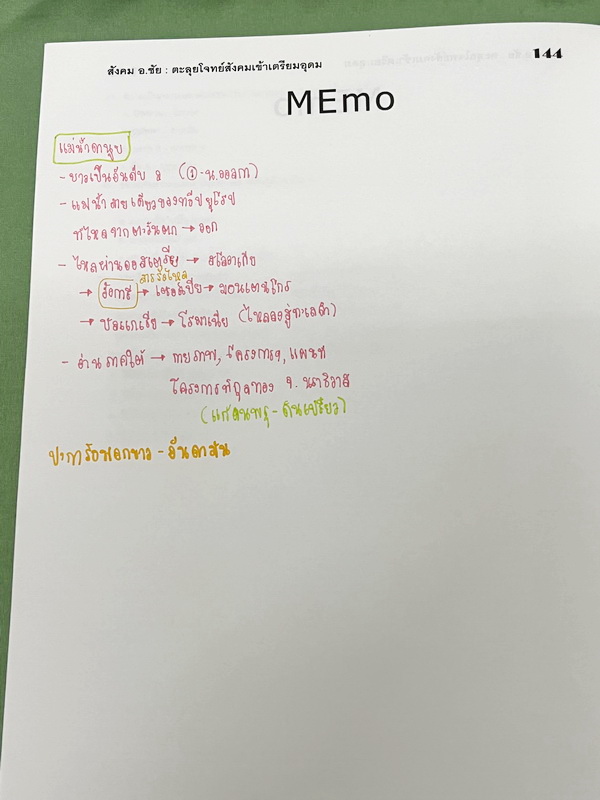 สังคม อ.ชัย : ตะลุยโจทย์สังคมเข้าเตรียมอุดม
144
MEmo
แม่น้ำดานูบ
- ยาวเป็นอันดับ 2 (①-น.วอลกา)
- แม่น้ำสายเดียวของทวีปยุโรป
ที่ไหลจากตะวันตก → ออก
- ไหลผ่านออสเตรีย → สโลวาเกีย
สารรัดไหล
→ ฮังการี → เซอร์เบีย → มอนเตเนโกร
→ บัลแกเรีย → โรมาเนีย (ไหลลงสู่ทะเลดำ)
- อ่านภาคใต้ → กายภาพ, โครงการฯ, แผนที่
โครงการพิกุลทอง จ. นราธิวาส
(แก้ดินพรุ - ดินเปรี้ยว)
ปะการังฟอกขาว - อันดามัน